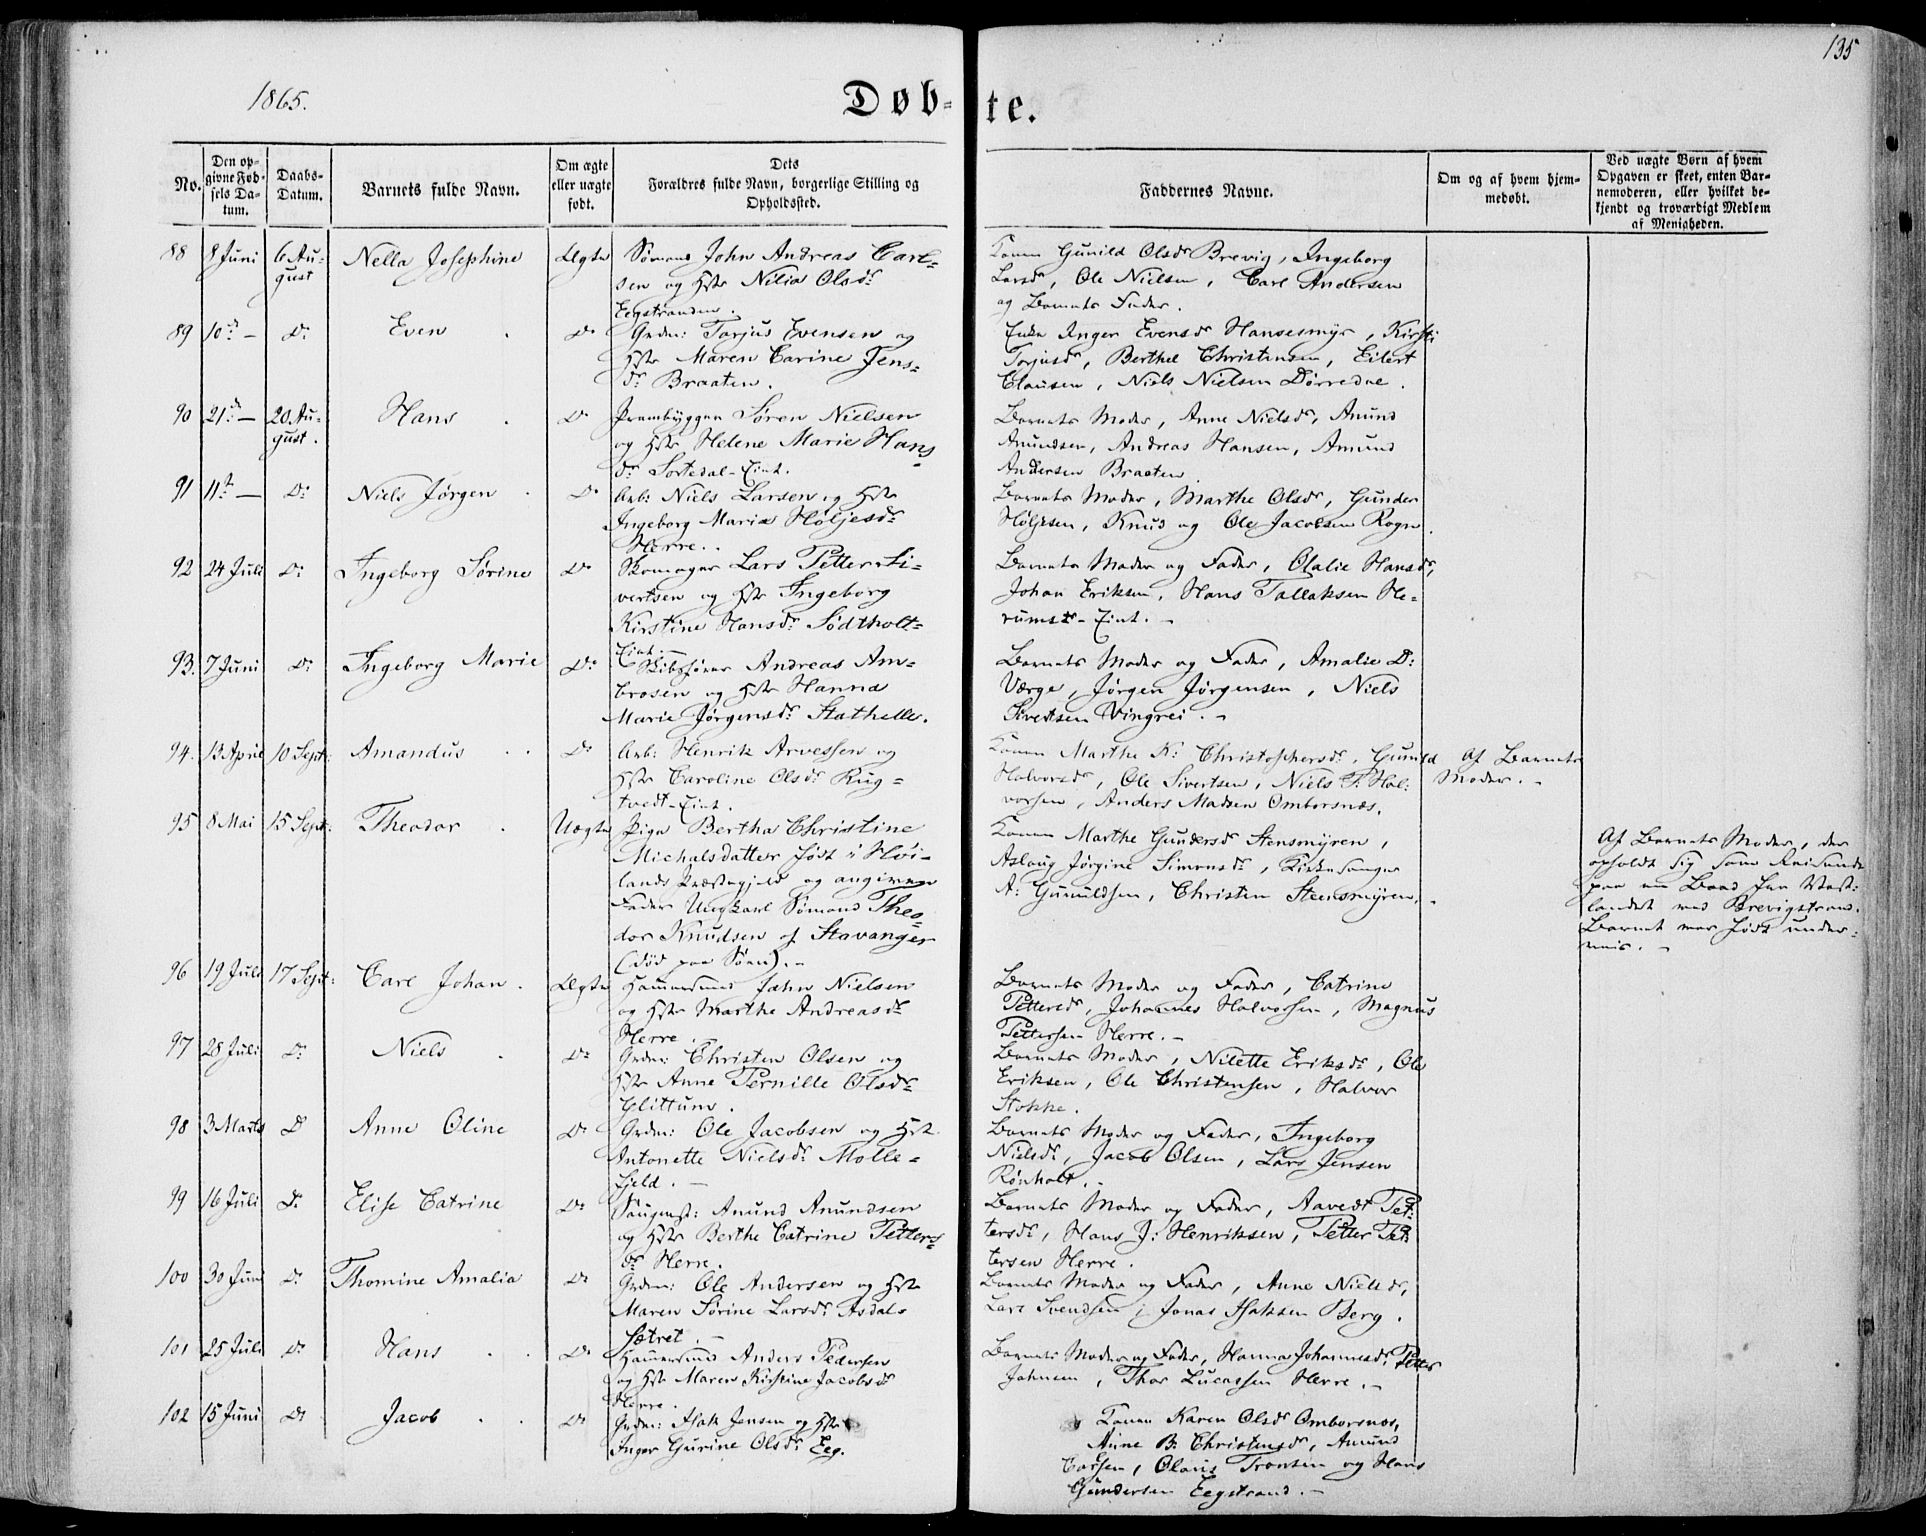 135
1865.
Døb-
te.
No.
Den op-
givne Fød-
sels Da-
tum.
Daabs-
Datum.
Barnets fulde Navn.
Om ægte
eller uægte
født.
Dets
Forældres fulde Navn, borgerlige Stilling og
Opholdssted.
Faddernes Navne.
Om og af hvem hjem-
medøbt.
Ved uægte Børn af hvem
Opgaven er skeet, enten Bar-
nemoderen, eller hvilket be-
kjendt og troværdigt Medlem
af Menigheden.
88 8 Juni 6 Au- Nella Josephine Ægte Sømand John Andreas Carl-
gust sen og Hst Nilia Olsdr
Eegstranden.
Konen Gunild Olsdr Brevig, Ingeborg
Larsdr, Ole Nielsen, Carl Andersen
og Barnets Fader.
89 10de — Do Even Do Grdm: Torjus Evensen og
Hst Maren Carine Jens-
dr Braaten.
Enke Inger Evensdr Hansesmyr, Kirsti
Torjusdr, Berthel Christensen, Eilert
Clausen, Niels Nielsen Dørredue.
90 21de — 20 Au- Hans Do Prambygger Søren Nielsen
gust. og Hst Helene Marie Hans
dr Sortedal-Eiet.
Barnets Moder, Anne Nielsdr, Anund
Anundsen, Andreas Hansen, Amund
Andersen Braaten.
91 11te — Do Niels Jørgen Do Arb: Niels Larsen og Hst
Ingeborg Maria Høljesdr
Herre.
Barnets Moder, Marthe Olsdr, Gunder
Høljesen, Knud og Ole Jacobsen Rogn.
92 24 Juli Do Ingeborg Sørine Do Skomager Lars Petter Si-
vertsen og Hst Ingeborg
Kirstine Hansdr Sødtholt-
Eiet.
Barnets Moder og Fader, Olalie Hansdr,
Johan Eriksen, Hans Tallaksen He-
rumsdr-Eiet. -
93. 7 Juni Do Ingeborg Marie Do Skibsfører Andreas Am-
brosen og Hst Hanna
Marie Jørgensdr Stathelle.
Barnets Moder og Fader, Amalie D:
Værge, Jørgen Jørgensen, Niels
Sivertsen Vingrei. -
94. 13 April 10 Sept: Amandus Do Arb: Henrik Arvessen og
Hst Caroline Olsdr Rug-
tvedt-Eiet.
Konen Marthe K: Christophersdr, Gunild
Halvorsdr, Ole Sivertsen, Niels P. Hal-
vorsen, Anders Madsen Omborsnæs.
Af Barnets
Moder. -
95 8 Mai 15 Sept: Theodor Uægte Pige Bertha Christine
Michalsdatter født i Høi-
lands Præstegjeld og angiven
Fader Ungkarl Sømand Theo-
dor Knudsen af Stavanger
(død paa Søen). -
Konen Marthe Gundersdr Stensmyren,
Aslaug Jørgine Simonsdr, Kirkesanger
A: Gunuldsen, Christen Steensmyren.
Af Barnets Moder, der
opholdt sig som Reisende
paa en Baad fra Vest-
landet ved Brevigstrand.
Barnet var født under-
veis. -
96 19 Juli 17 Sept: Carl Johan. Ægte Hammersmed John Nielsen
og Hst Marthe Andreasdr
Herre.
Barnets Moder og Fader, Catrine
Pettersdr, Johannes Halvorsen, Magnus
Pettersen Herre. -
97 28 Juli Do Niels Do Grdm: Christen Olsen og
Hst Anne Pernille Olsdr
Glittum.
Barnets Moder, Nilette Eriksdr, Ole
Eriksen, Ole Christensen, Halvor
Stokke.
98 3 Marts Do Anne Oline Do Grdm: Ole Jacobsen og Hst
Antonette Nielsdr Molle-
fjeld. -
Barnets Moder og Fader, Ingeborg
Nielsdr, Jacob Olsen, Lars Jensen
Rønholt. -
99 16 Juli Do Elise Catrine Do Saugmst: Anund Anundsen
og Hst Berthe Catrine Petters-
dr Herre.
Barnets Moder og Fader, Aavedt Pet-
tersdr, Hans J: Henriksen, Petter Pet-
tersen Herre.
100 30 Juni Do Thomine Amalia Do Grdm: Ole Andersen og Hst
Maren Sørine Larsdr Asdals
Sætret. -
Barnets Moder og Fader, Anne Nielsdr,
Lars Svendsen, Jonas Isaksen Berg.
101 25 Juli Do Hans Do Hammersmed Anders Pedersen
og Hst Maren Kirstine Jacobsdr
Herre.
Barnets Moder og Fader, Hanna Johannesdr, Petter
Johnsen, Thor Lucassen Herre. -
102 15 Juni Do Jacob Do Grdm: Isak Jensen og Hst
Inger Gurine Olsdr Eeg.
Konen Karen Olsdr Omborsnæs,
Anne B: Christensdr, Amund
Larsen, Olaus Tronsen og Hans
Gundersen Eegstrand. -